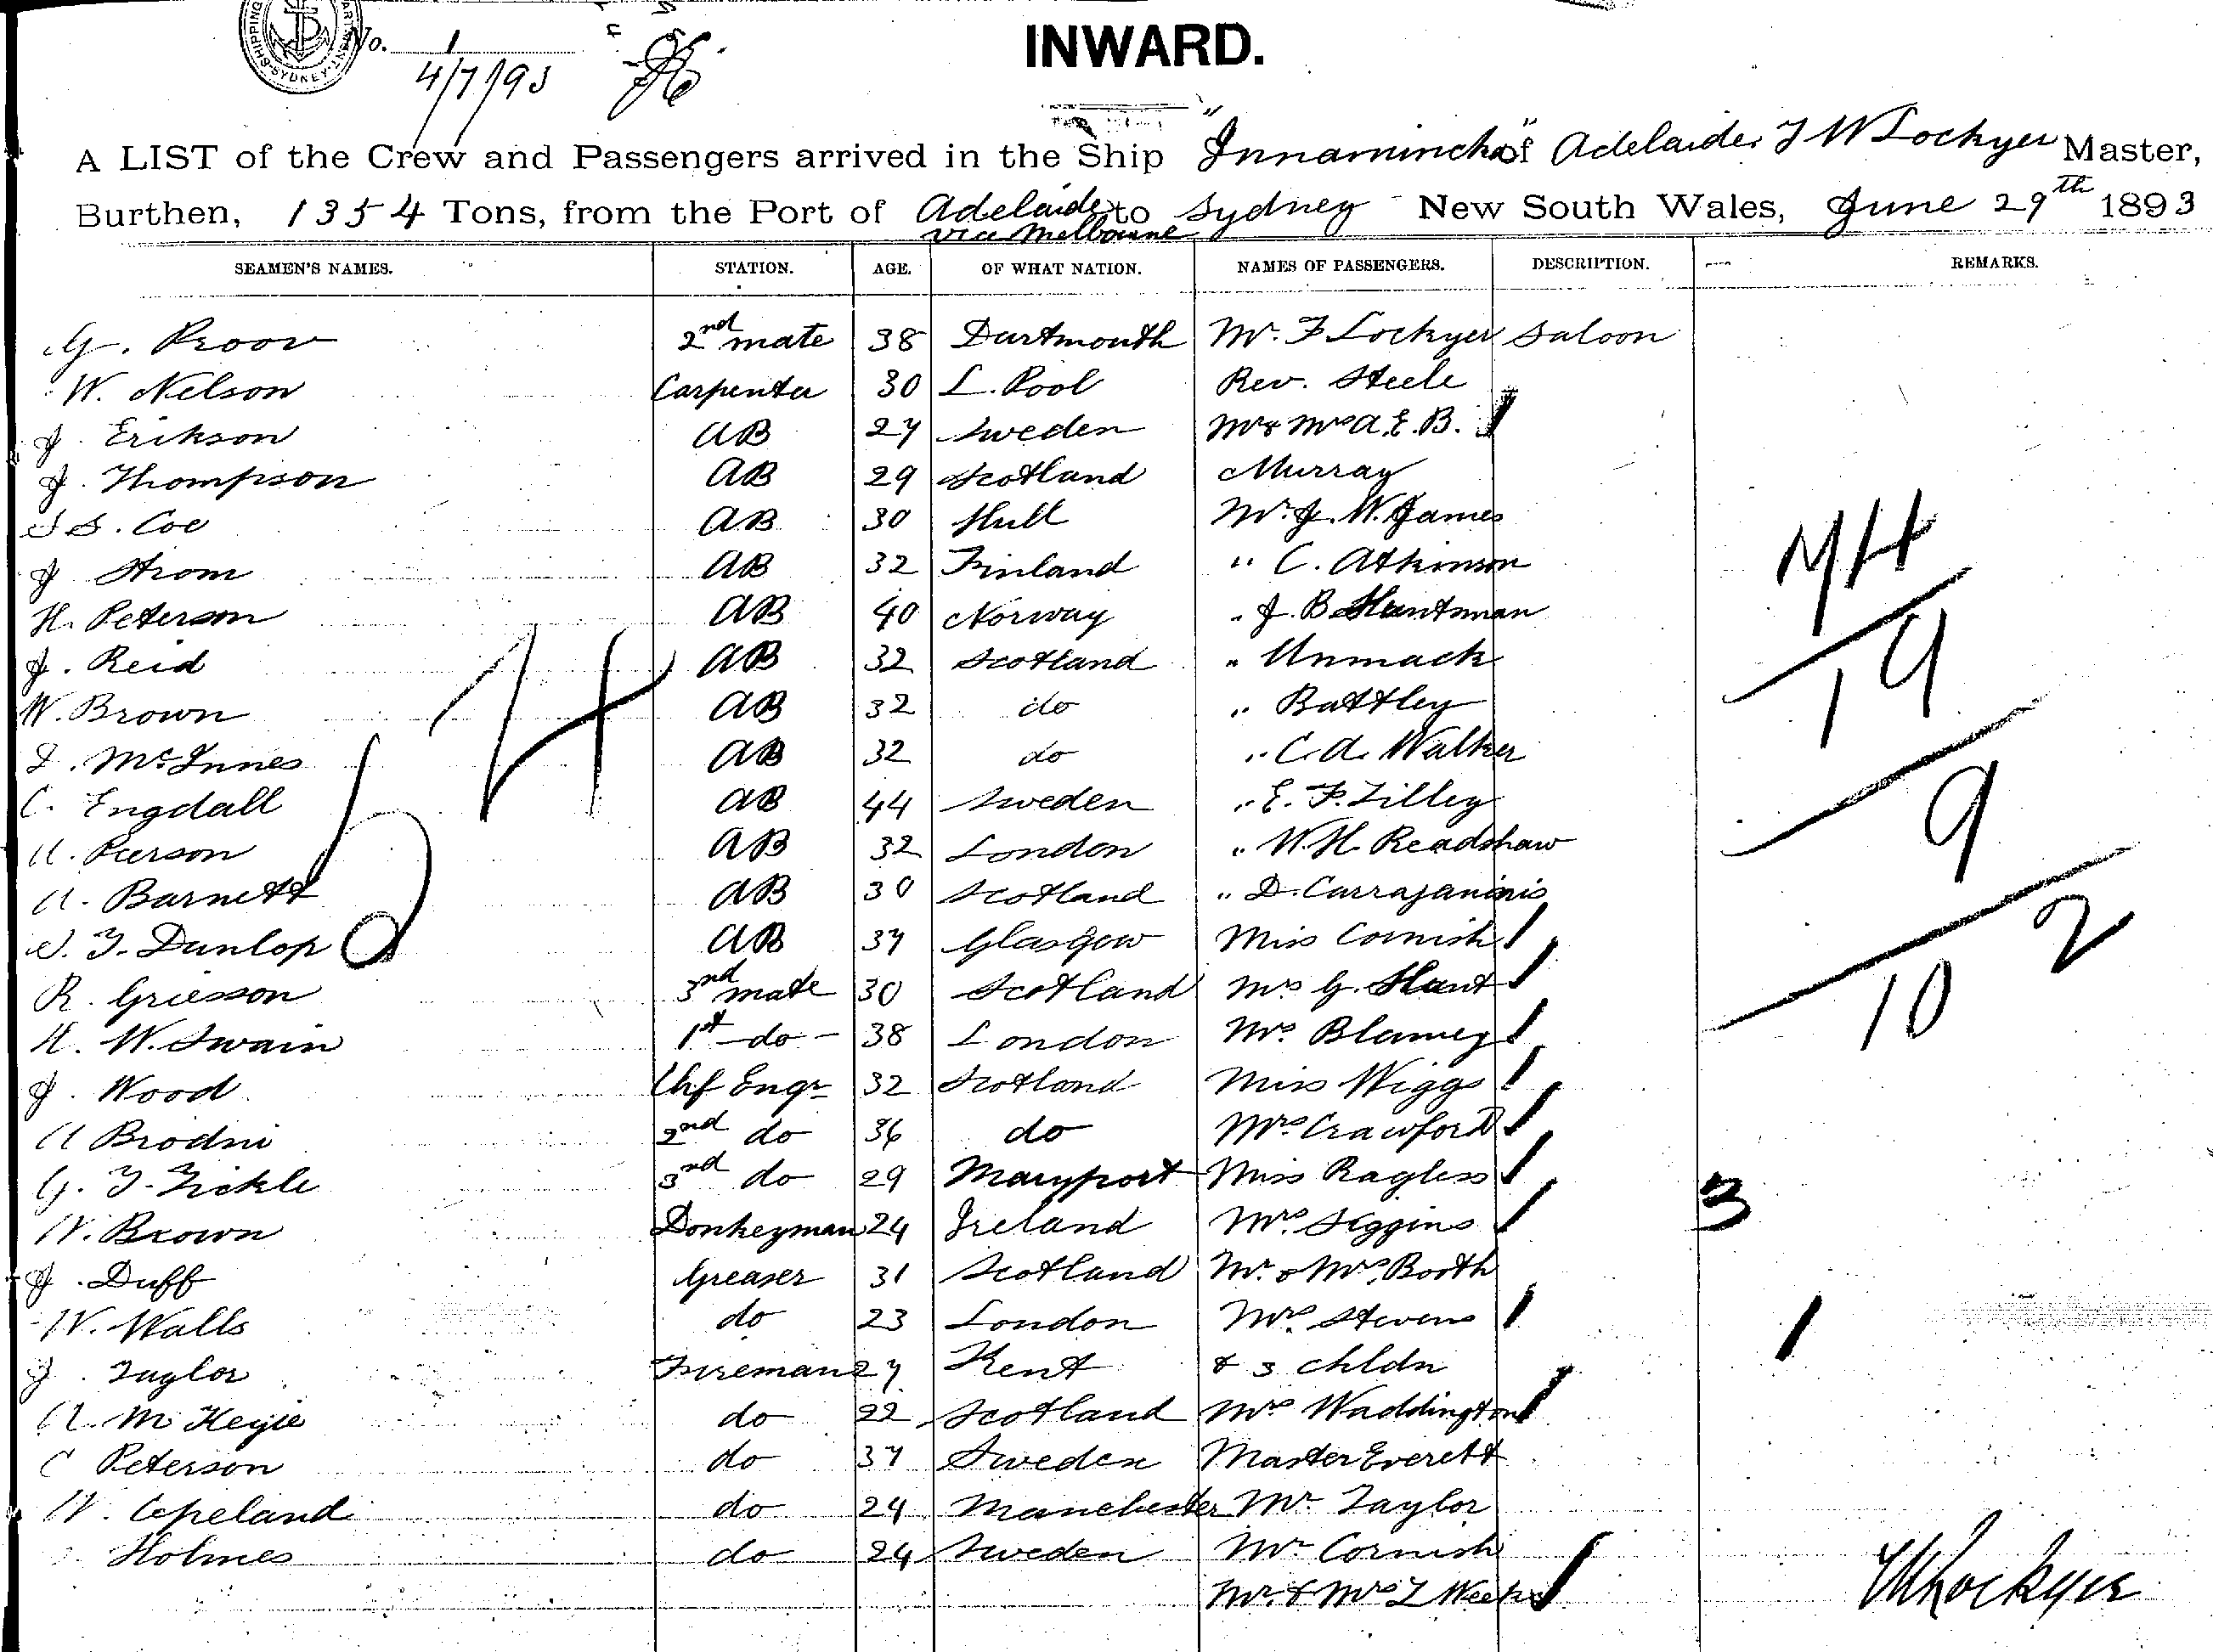 SHIPPING DEPARTMENT SYDNEY
No. 1
4/7/93
INWARD.
A LIST of the Crew and Passengers arrived in the Ship "Innamincka" of Adelaide, T W Lockyer Master,
Burthen, 1354 Tons, from the Port of Adelaide to Sydney New South Wales, June 29th 1893
via Melbourne
SEAMEN'S NAMES. STATION. AGE. OF WHAT NATION. NAMES OF PASSENGERS. DESCRIPTION. REMARKS.
G. Proov 2nd mate 38 Dartmouth Mr. F Lockyer Saloon
W. Nelson Carpenter 30 L. Pool Rev. Steele
J. Erikson AB 27 Sweden Mr & Mrs A. E. B.
J. Thompson AB 29 Scotland Murray
S. Coe AB 30 Hull Mr. J. W. James
J Strom AB 32 Finland " C. Atkinson
H. Peterson AB 40 Norway " J. B Huntsman
J. Reid AB 32 Scotland " Unmack
W. Brown AB 32 do " Battley
D. McInnes AB 32 do " C. A. Walker
C. Engdall AB 44 Sweden " E. F. Lilley
A. Pierson AB 32 London " W. H. Readshaw
A. Barnett AB 30 Scotland " D.
J. T. Dunlop AB 37 Glasgow Miss Cornish
R. Grierson 3rd mate 30 Scotland Mrs G. Hunt
H. W. Swain 1st do 38 London Mrs. Blamey
J. Wood Chf Engr 32 Scotland Miss Wiggs
A Brodni 2nd do 36 do Mrs Crawford
G. T. Tickle 3rd do 29 Maryport Miss Ragless
W. Brown Donkeyman 24 Ireland Mrs. Siggins
J. Duff Greaser 31 Scotland Mr. & Mrs. Booth
W. Walls do 23 London Mrs. Stevens
J. Taylor Fireman 27 Kent & 3 chldn
A. McKeyie do 22 Scotland Mrs Waddington
C Peterson do 37 Sweden Master Everett
W. Copeland do 24 Manchester Mr. Taylor
Holmes do 24 Sweden Mr Cornish
Mr. & Mrs L Weeks
14
19
9
2
10
3
1
TW Lockyer